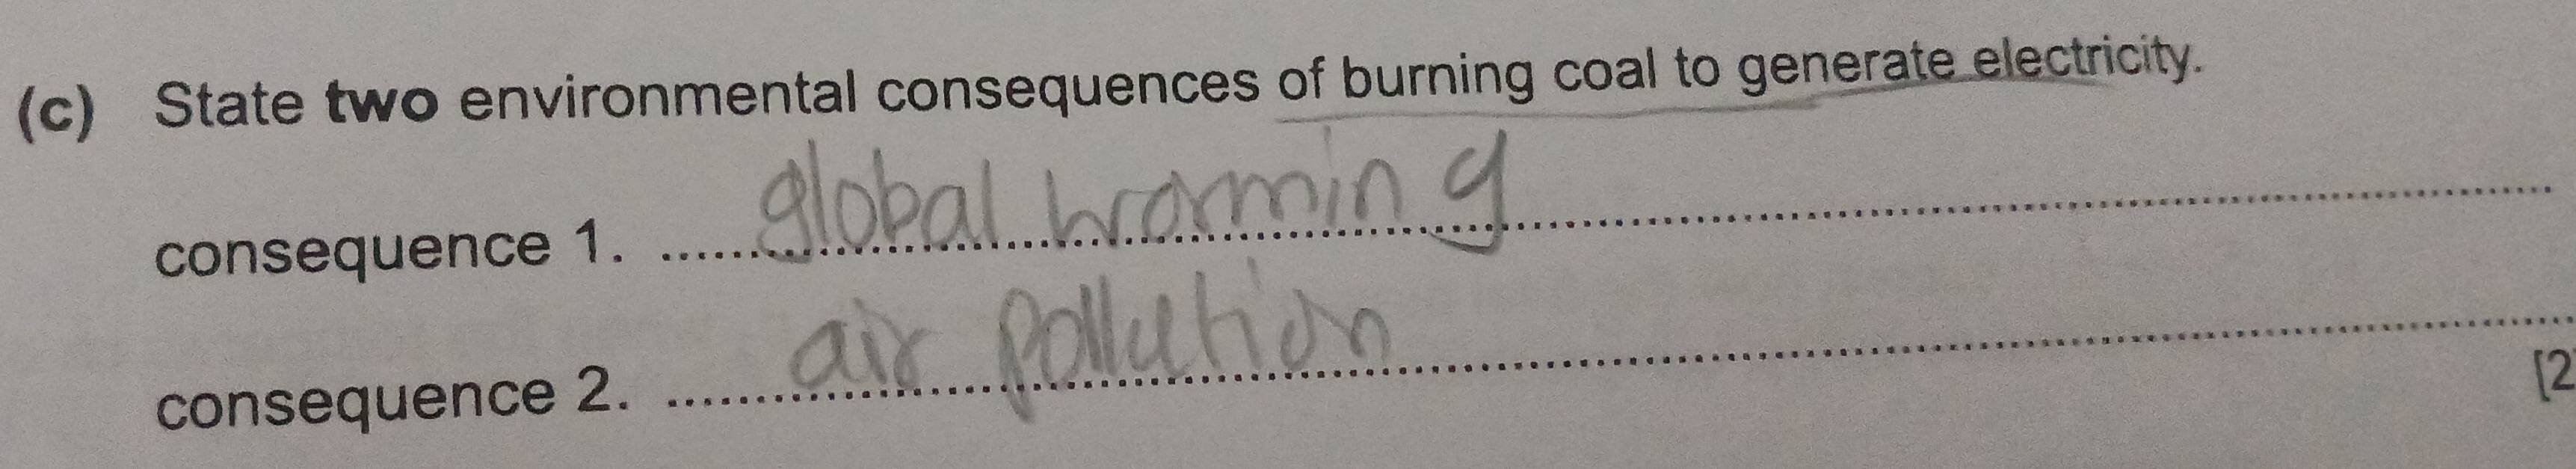 (c) State two environmental consequences of burning coal to generate electricity.
consequence 1. global worming
consequence 2. air pollution
[2